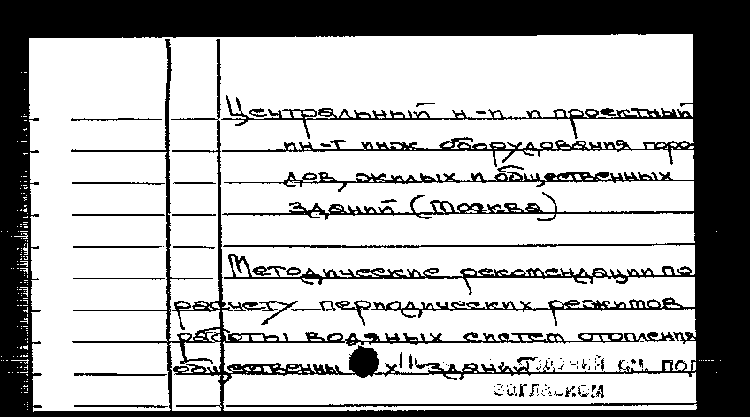 Центральный н.-и. и проектный
ин-т инж. оборудования горо-
дов, жилых и общественных
зданий (Москва)
Методические рекомендации по
расчету периодических режимов
работы водяных систем отопления
общественных зданий см. под
заглавием